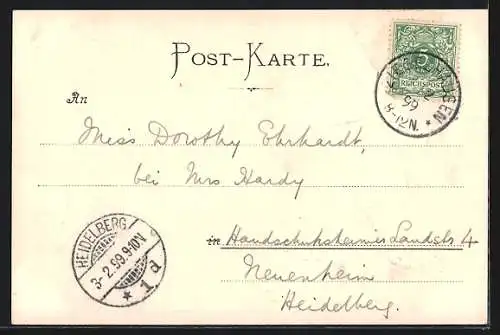 POST-KARTE.
5
REICHSPOST
99
8-12N.
An
Miss Dorothy Ehrhardt,
bei Mrs Hardy
in Handschuhsheimer Landstr 4
Neuenheim
Heidelberg.
HEIDELBERG
3-2.99.9-10N
* 1d